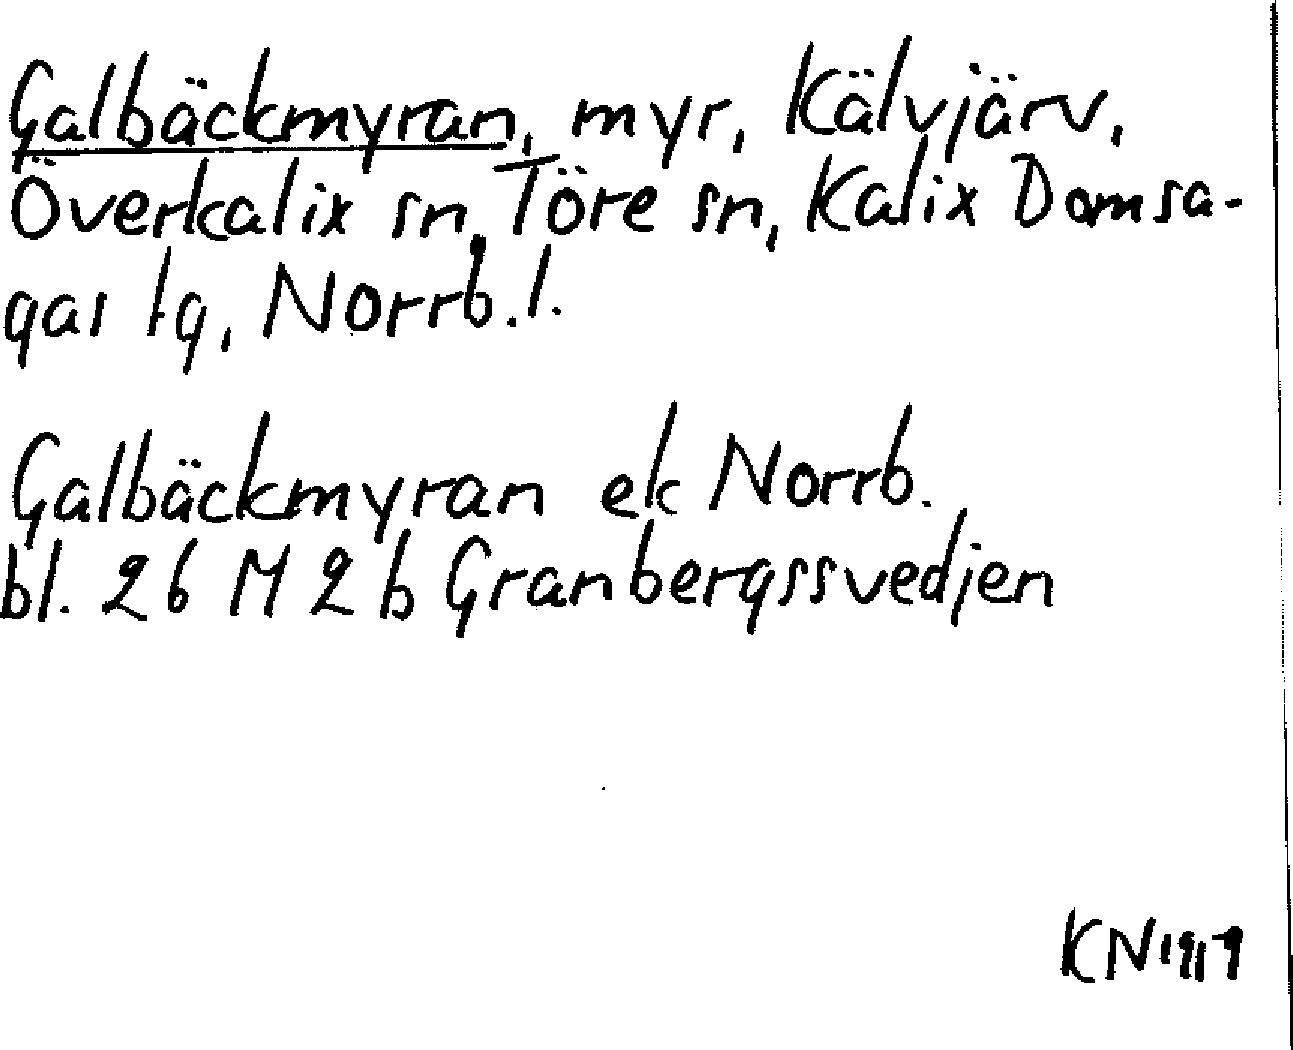 Galbäckmyran, myr, Kälvjärv,
Överkalix sn, Töre sn, Kalix Domsa-
gas tg, Norrb. l.
Galbäckmyran ek Norrb.
bl. 26 M 2 b Granbergssvedjen
KN